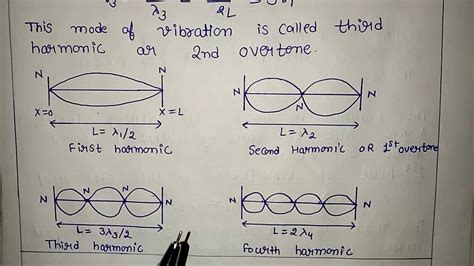 λ3 2L
This mode of vibration is called third
harmonic or 2nd overtone.
N N
X=0 X=L
L = λ1/2
First harmonic
N N N
L = λ2
Second Harmonic OR 1st overtone
N N N N
L = 3λ3/2
Third harmonic
N N
L = 2λ4
Fourth harmonic